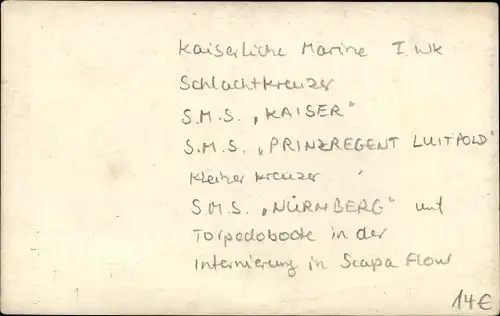 Kaiserliche Marine I. WK
Schlachtkreuzer
S.M.S. „KAISER"
S.M.S. „PRINZREGENT LUITPOLD"
Kleiner Kreuzer
S.M.S. „NÜRNBERG" mit
Torpedoboote in der
Internierung in Scapa Flow
14€